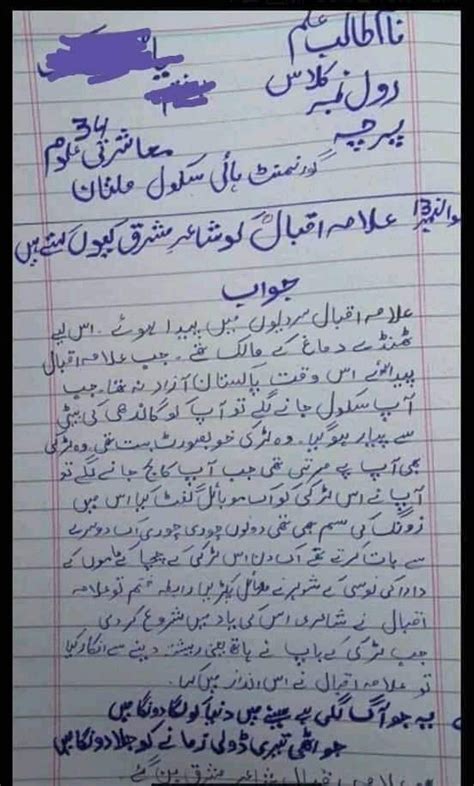 نام طالب علم
کلاس
رول نمبر 34
پرچہ معاشرتی علوم
گورنمنٹ ہائی سکول ملتان
سوال نمبر 13 علامہ اقبالؒ کو شاعر مشرق کیوں کہتے ہیں
جواب
علامہ اقبال سردیوں میں پیدا ہوئے۔ اس لیے
ٹھنڈے دماغ کے مالک تھے۔ جب علامہ اقبال
پیدا ہوئے اس وقت پاکستان آزاد نہ تھا۔ جب
آپ سکول جانے لگے تو آپ کو گاندھی کی بیٹی
سے پیار ہو گیا۔ وہ لڑکی خوبصورت بہت تھی وہ لڑکی
بھی آپ پے مرتی تھی جب آپ کالج جانے لگے تو
آپ نے اس لڑکی کو اک موبائل گفٹ کیا اس میں
زونگ کی سم بھی تھی دونوں چوری چوری اک دوسرے
سے بات کرتے تھے اک دن اس لڑکی کے چچا کے ماموں کے
دادا کی نوسی کے شوہر نے موبائل پکڑ لیا رابطہ ختم تو علامہ
اقبال نے شاعری اس کی یاد میں شروع کر دی
جب لڑکی کے باپ نے ہاتھ یعنی رشتہ دینے سے انکار کیا
تو علامہ اقبال نے اس انداز میں کہا۔
یہ جو آگ لگی ہے سینے میں دنیا کو لگا دونگا میں
جو اٹھی تیری ڈولی زمانے کو جلا دونگا میں
اقبال شاعر مشرق بن گئے